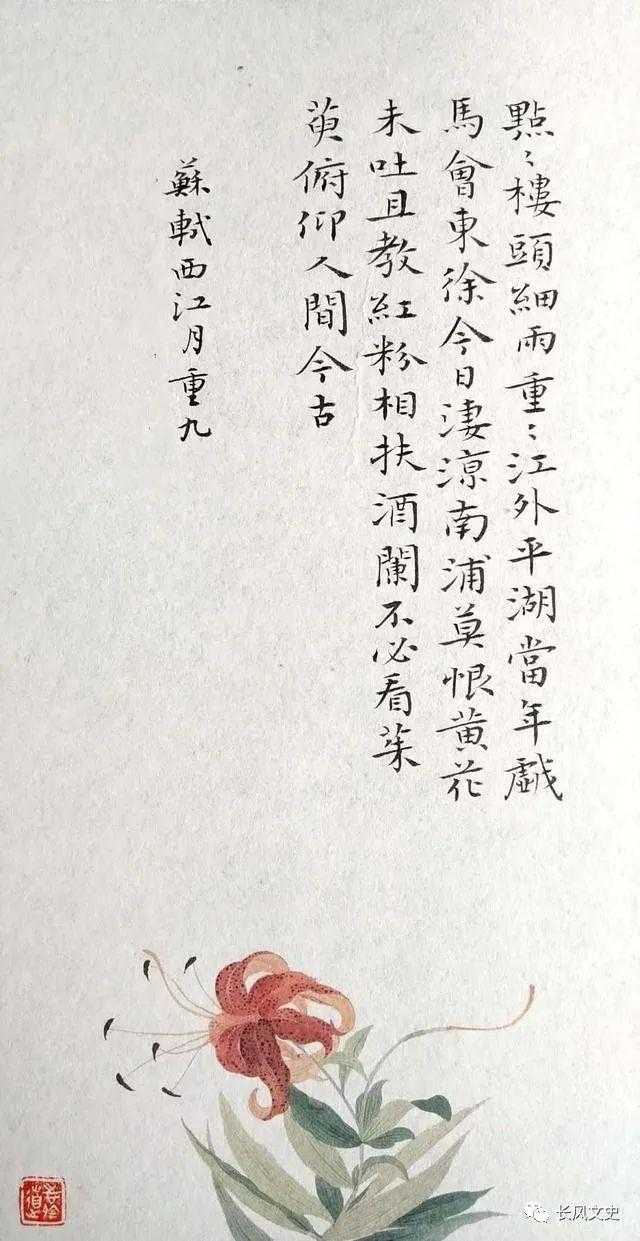 點〻樓頭細雨重〻江外平湖當年戲
馬會東徐今日淒涼南浦莫恨黄花
未吐且教紅粉相扶酒闌不必看茱
萸俯仰人間今古
蘇軾西江月重九
长风文史